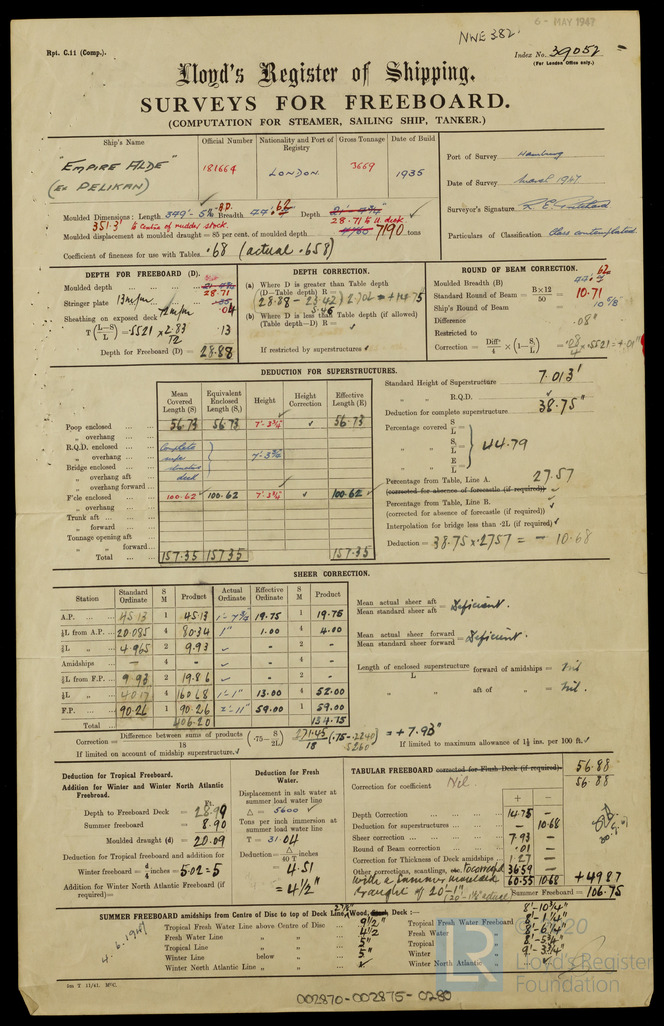 6 - MAY 1947
NWE 382
Rpt. C.11 (Comp.).
Index No. 39052
(For London Office only.)
Lloyd's Register of Shipping.
SURVEYS FOR FREEBOARD.
(COMPUTATION FOR STEAMER, SAILING SHIP, TANKER.)
Ship's Name Official Number Nationality and Port of Registry Gross Tonnage Date of Build
"EMPIRE ALDE" (ex PELIKAN) 181664 LONDON 3669 1935
Port of Survey Hamburg
Date of Survey March 1947
Surveyor's Signature
Particulars of Classification Class contemplated
Moulded Dimensions: Length 349'- 5¾" B.P. Breadth 44.62 Depth
351.3' to centre of rudder stock. 28.71 S. deck
Moulded displacement at moulded draught = 85 per cent. of moulded depth 7190 tons
Coefficient of fineness for use with Tables .68 (actual .658)
DEPTH FOR FREEBOARD (D).
Moulded depth 28.71
Stringer plate 13m/m .04
Sheathing on exposed deck 72m/m
T (L—S/L) = .5521 x 2.83/72 .13
Depth for Freeboard (D) = 28.88
DEPTH CORRECTION.
(a) Where D is greater than Table depth
(D—Table depth) R =
(28.88 - 23.42) 2.702 = +14.75
5.46
(b) Where D is less than Table depth (if allowed)
(Table depth—D) R =
If restricted by superstructures
ROUND OF BEAM CORRECTION.
Moulded Breadth (B) 44.62
Standard Round of Beam = B×12/50 = 10.71
Ship's Round of Beam = 10 5/8"
Difference .08"
Restricted to
Correction = Diff/4 × (1—S/L) = .08/4 x .5521 = +.01"
DEDUCTION FOR SUPERSTRUCTURES.
Mean Covered Length (S) Equivalent Enclosed Length (S₁) Height Height Correction Effective Length (E)
Poop enclosed 56.73 56.73 7'-3¾" ✓ 56.73
" overhang
R.Q.D. enclosed Complete
" overhang 7'-3¾
Bridge enclosed
" overhang aft deck
" overhang forward
F'cle enclosed 100.62 100.62 7'-3¾" ✓ 100.62
" overhang
Trunk aft
" forward
Tonnage opening aft
" " forward
Total 157.35 157.35 157.35
Standard Height of Superstructure 7.013'
" " R.Q.D. ✓
Deduction for complete superstructure 38.75"
Percentage covered S/L =
" " S₁/L = 44.79
" " E/L =
Percentage from Table, Line A. 27.57
(corrected for absence of forecastle (if required))
Percentage from Table, Line B.
(corrected for absence of forecastle (if required))
Interpolation for bridge less than .2L (if required)
Deduction = 38.75 x .2757 = - 10.68
SHEER CORRECTION.
Station Standard Ordinate S M Product Actual Ordinate Effective Ordinate S M Product
A.P. 45.13 1 45.13 1'-7¾ 19.75 1 19.75
⅙L from A.P. 20.085 4 80.34 1" 1.00 4 4.00
⅓L " 4.965 2 9.93 ✓ - 2 -
Amidships - 4 - ✓ - 4 -
⅓L from F.P. 9.93 2 19.86 ✓ - 2 -
⅙L " 40.17 4 160.68 1'-1" 13.00 4 52.00
F.P. 90.26 1 90.26 4'-11" 59.00 1 59.00
Total 406.20 134.75
Mean actual sheer aft / Mean standard sheer aft = Deficient.
Mean actual sheer forward / Mean standard sheer forward = Deficient.
Length of enclosed superstructure / L forward of amidships = Nil
" " aft of " = Nil.
Correction = Difference between sums of products / 18 (.75— S/2L) = 271.45/18 (.75-.2240) = +7.93"
.5260
If limited on account of midship superstructure.
If limited to maximum allowance of 1½ ins. per 100 ft.
Deduction for Tropical Freeboard.
Addition for Winter and Winter North Atlantic Freeboard.
Ft.
Depth to Freeboard Deck = 28.99
Summer freeboard = 8.90
Moulded draught (d) = 20.09
Deduction for Tropical freeboard and addition for
Winter freeboard = d/4 inches = 5.02 = 5
Addition for Winter North Atlantic Freeboard (if required) =
Deduction for Fresh Water.
Displacement in salt water at summer load water line
Δ = 5600
Tons per inch immersion at summer load water line
T = 31.04
Deduction = Δ/40 T inches
= 4.51
= 4½"
TABULAR FREEBOARD corrected for Flush Deck (if required) 56.88
Correction for coefficient Nil 56.88
+ —
Depth Correction 14.75 —
Deduction for superstructures — 10.68
Sheer correction 7.93 —
Round of Beam correction .01 —
Correction for Thickness of Deck amidships 1.27 —
Other corrections, scantlings, etc. To correspond 36.59 —
with a summer moulded draught of 20'-1" 60.55 10.68 +49.87
Summer Freeboard = 106.75
SUMMER FREEBOARD amidships from Centre of Disc to top of Deck Line, Wood, Deck :—
Tropical Fresh Water Line above Centre of Disc 9½"
Fresh Water Line " " 4½
Tropical Line " " 5"
Winter Line below " 5"
Winter North Atlantic Line " " ✓
8'-10¾"
Tropical Fresh Water Freeboard 8'-1¼"
Fresh Water " 8'-6¼"
Tropical " 8'-5¾"
Winter " 9'-3¾"
Winter North Atlantic " ✓
4.6.1947
© 2020
LR
Lloyd's Register
Foundation
1m T 11/41. MᶜC.
002870-002875-0280